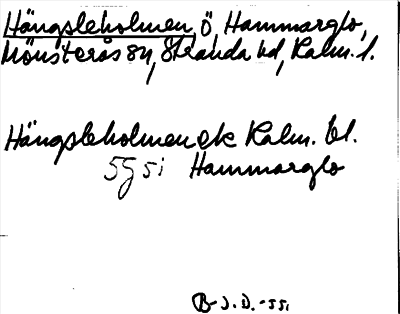 Hängsleholmen, ö, Hammarglo,
Mönsterås sn, Stranda hd, Kalm. l.
Hängsleholmen ek Kalm. bl.
5g si Hammarglo
B-J.D. -55